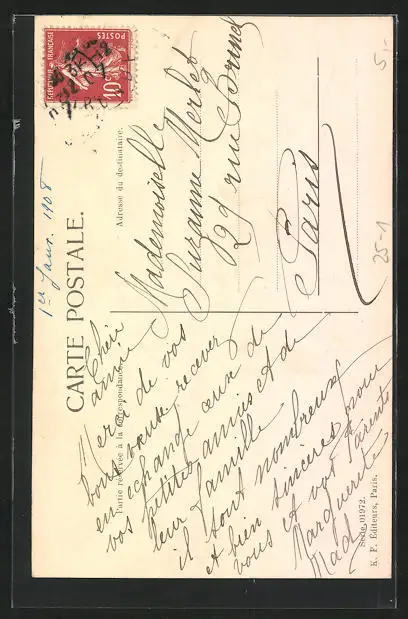 RÉPUBLIQUE FRANÇAISE
POSTES
10
1er Janv. 1908
CARTE POSTALE.
Partie réservée à la correspondance.
Adresse du destinataire.
Mademoiselle
Suzanne Merlet
29 rue
Paris
Chère
amie
Merci de vos
bons vœux recevez
en échange ceux de
vos petites amies et de
leur famille
il sont nombreux
et bien sincères pour
vous et vos Parents
Marguerite
Mad
Série 01972.
K. F. Éditeurs, Paris.
5-
25-1